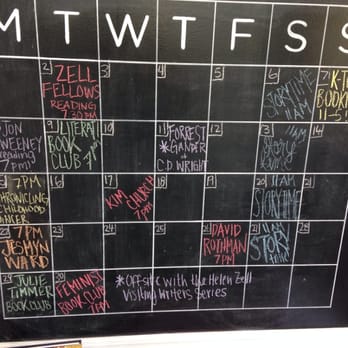 M T W T F S S
2
ZELL
FELLOWS
READING
7:30PM
3
4
5
6
STORYTIME
11AM
7
BOOK
11-5
JON
SWEENEY
reading
7pm
9
LITERATI
BOOK
CLUB 7pm
10
11
FORREST
*GANDER
C.D. WRIGHT
12
13
11AM
Story
14
2PM
CHRONICLING
CHILDHOOD
CANCER
16
17
KIM CHURCH
7pm
18
19
20
11AM
STORYTIME
21
7PM
JESMYN
WARD
DAVID
ROTHMAN
7PM
11AM
STORY
TIME
JULIE
BOOK CLUB
30
FEMINIST
BOOK CLUB
7PM
*Offsite with the Helen Zell
Visiting Writers Series